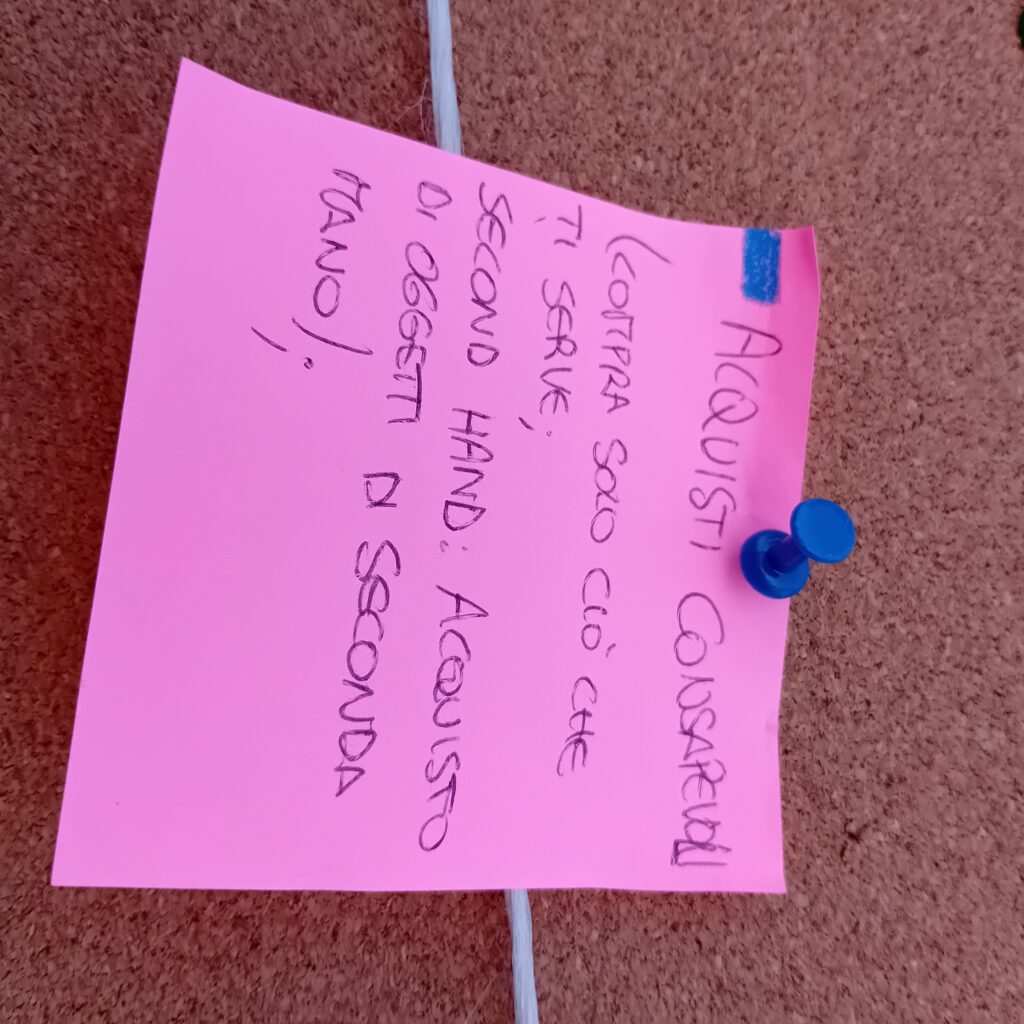 ACQUISTI CONSAPEVOLI
(COMPRA SOLO CIÒ CHE
TI SERVE;
SECOND HAND: ACQUISTO
DI OGGETTI DI SECONDA
MANO);